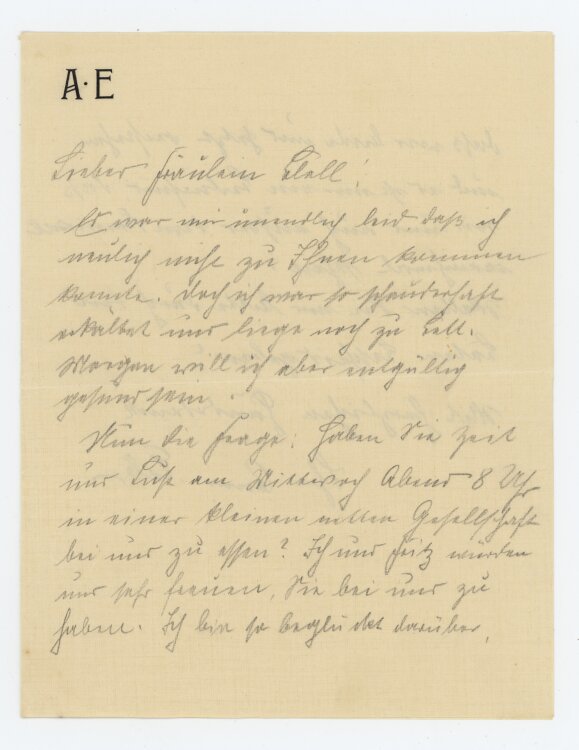 A·E
Lieber Fräulein Clell!
Es war mir unendlich leid daß ich
neulich nicht zu Ihnen kommen
konnte. Doch ich war so schauderhaft
erkältet und liege noch zu Bett.
Morgen will ich aber entgültig
gesund sein.
Nun die Frage: haben Sie Zeit
und Lust am Mittwoch Abend 8 Uhr
in einer kleinen netten Gesellschaft
bei uns zu essen? Ich und Fritz würden
uns sehr freuen, Sie bei uns zu
haben. Ich bin so beglückt darüber,